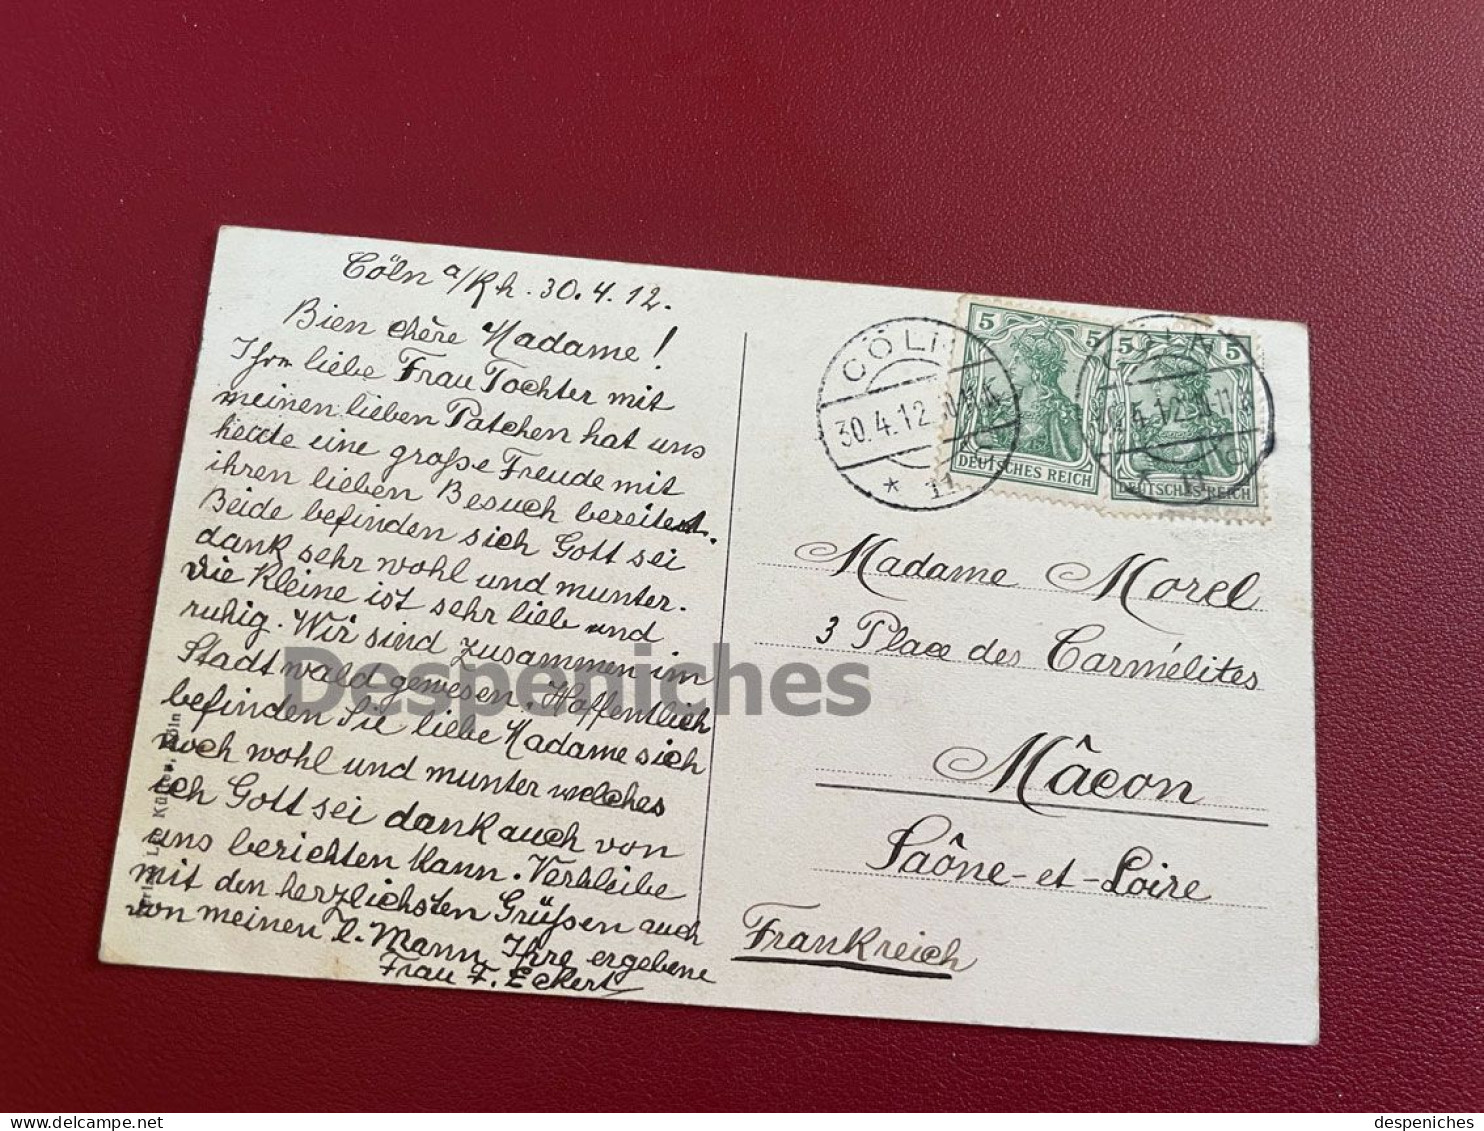 Cöln a/Rh. 30.4.12.
Bien chère Madame!
Ihre liebe Frau Tochter mit
meinen lieben Patchen hat uns
heute eine große Freude mit
ihren lieben Besuch bereitet.
Beide befinden sich Gott sei
dank sehr wohl und munter.
Die Kleine ist sehr lieb und
ruhig. Wir sind zusammen im
Stadtwald gewesen. Hoffentlich
befinden Sie liebe Madame sich
noch wohl und munter welches
ich Gott sei dank auch von
uns berichten kann. Verbleibe
mit den herzlichsten Grüßen auch
von meinen l. Mann Ihre ergebene
Frau F. Eckert
CÖLN
30.4.12
* 11
5 5
DEUTSCHES REICH
5 5
DEUTSCHES REICH
Madame Morel
3 Place des Carmélites
Mâcon
Saône-et-Loire
Frankreich
Despeniches
delcampe.net
despeniches